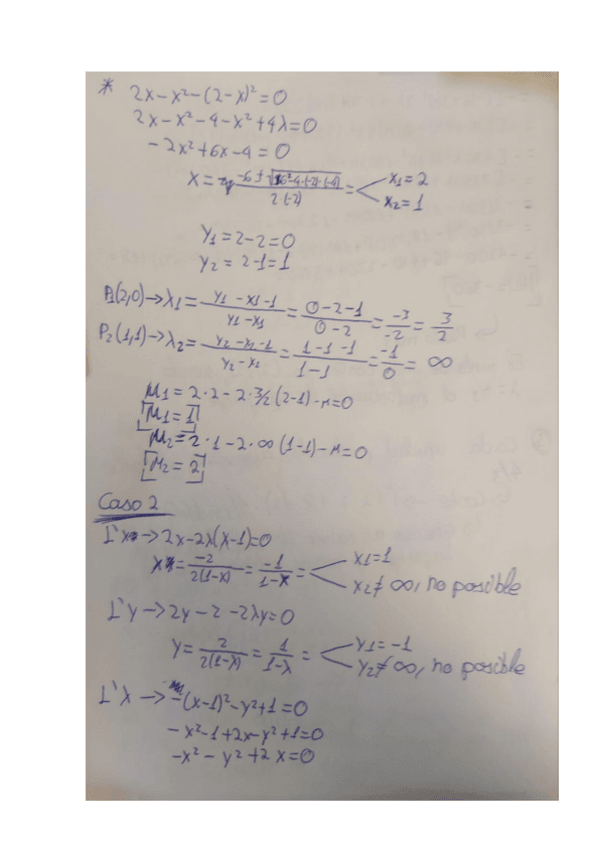 * 2x-x²-(2-x)²=0
2x-x²-4-x²+4x=0
-2x²+6x-4=0
x= -6±√(6²-4·(-2)·(-4)) / 2·(-2) = x₁=2
x₂=1
y₁=2-2=0
y₂=2-1=1
P₁(2,0)→λ₁= (y₁-x₁-1)/(y₁-x₁) = (0-2-1)/(0-2) = -3/-2 = 3/2
P₂(1,1)→λ₂= (y₂-x₂-1)/(y₂-x₂) = (1-1-1)/(1-1) = -1/0 = ∞
μ₁=2·2-2·3/2(2-1)-μ=0
[μ₁=1]
μ₂=2·1-2·∞(1-1)-μ=0
[μ₂=2]
Caso 2
L'x→2x-2λ(x-1)=0
x= -2/2(1-λ) = -1/1-λ = x₁=1
x₂≠∞, no posible
L'y→2y-2-2λy=0
y= 2/2(1-λ) = 1/1-λ = y₁=-1
y₂≠∞, no posible
L'λ→-(x-1)²-y²+1=0
-x²-1+2x-y²+1=0
-x²-y²+2x=0